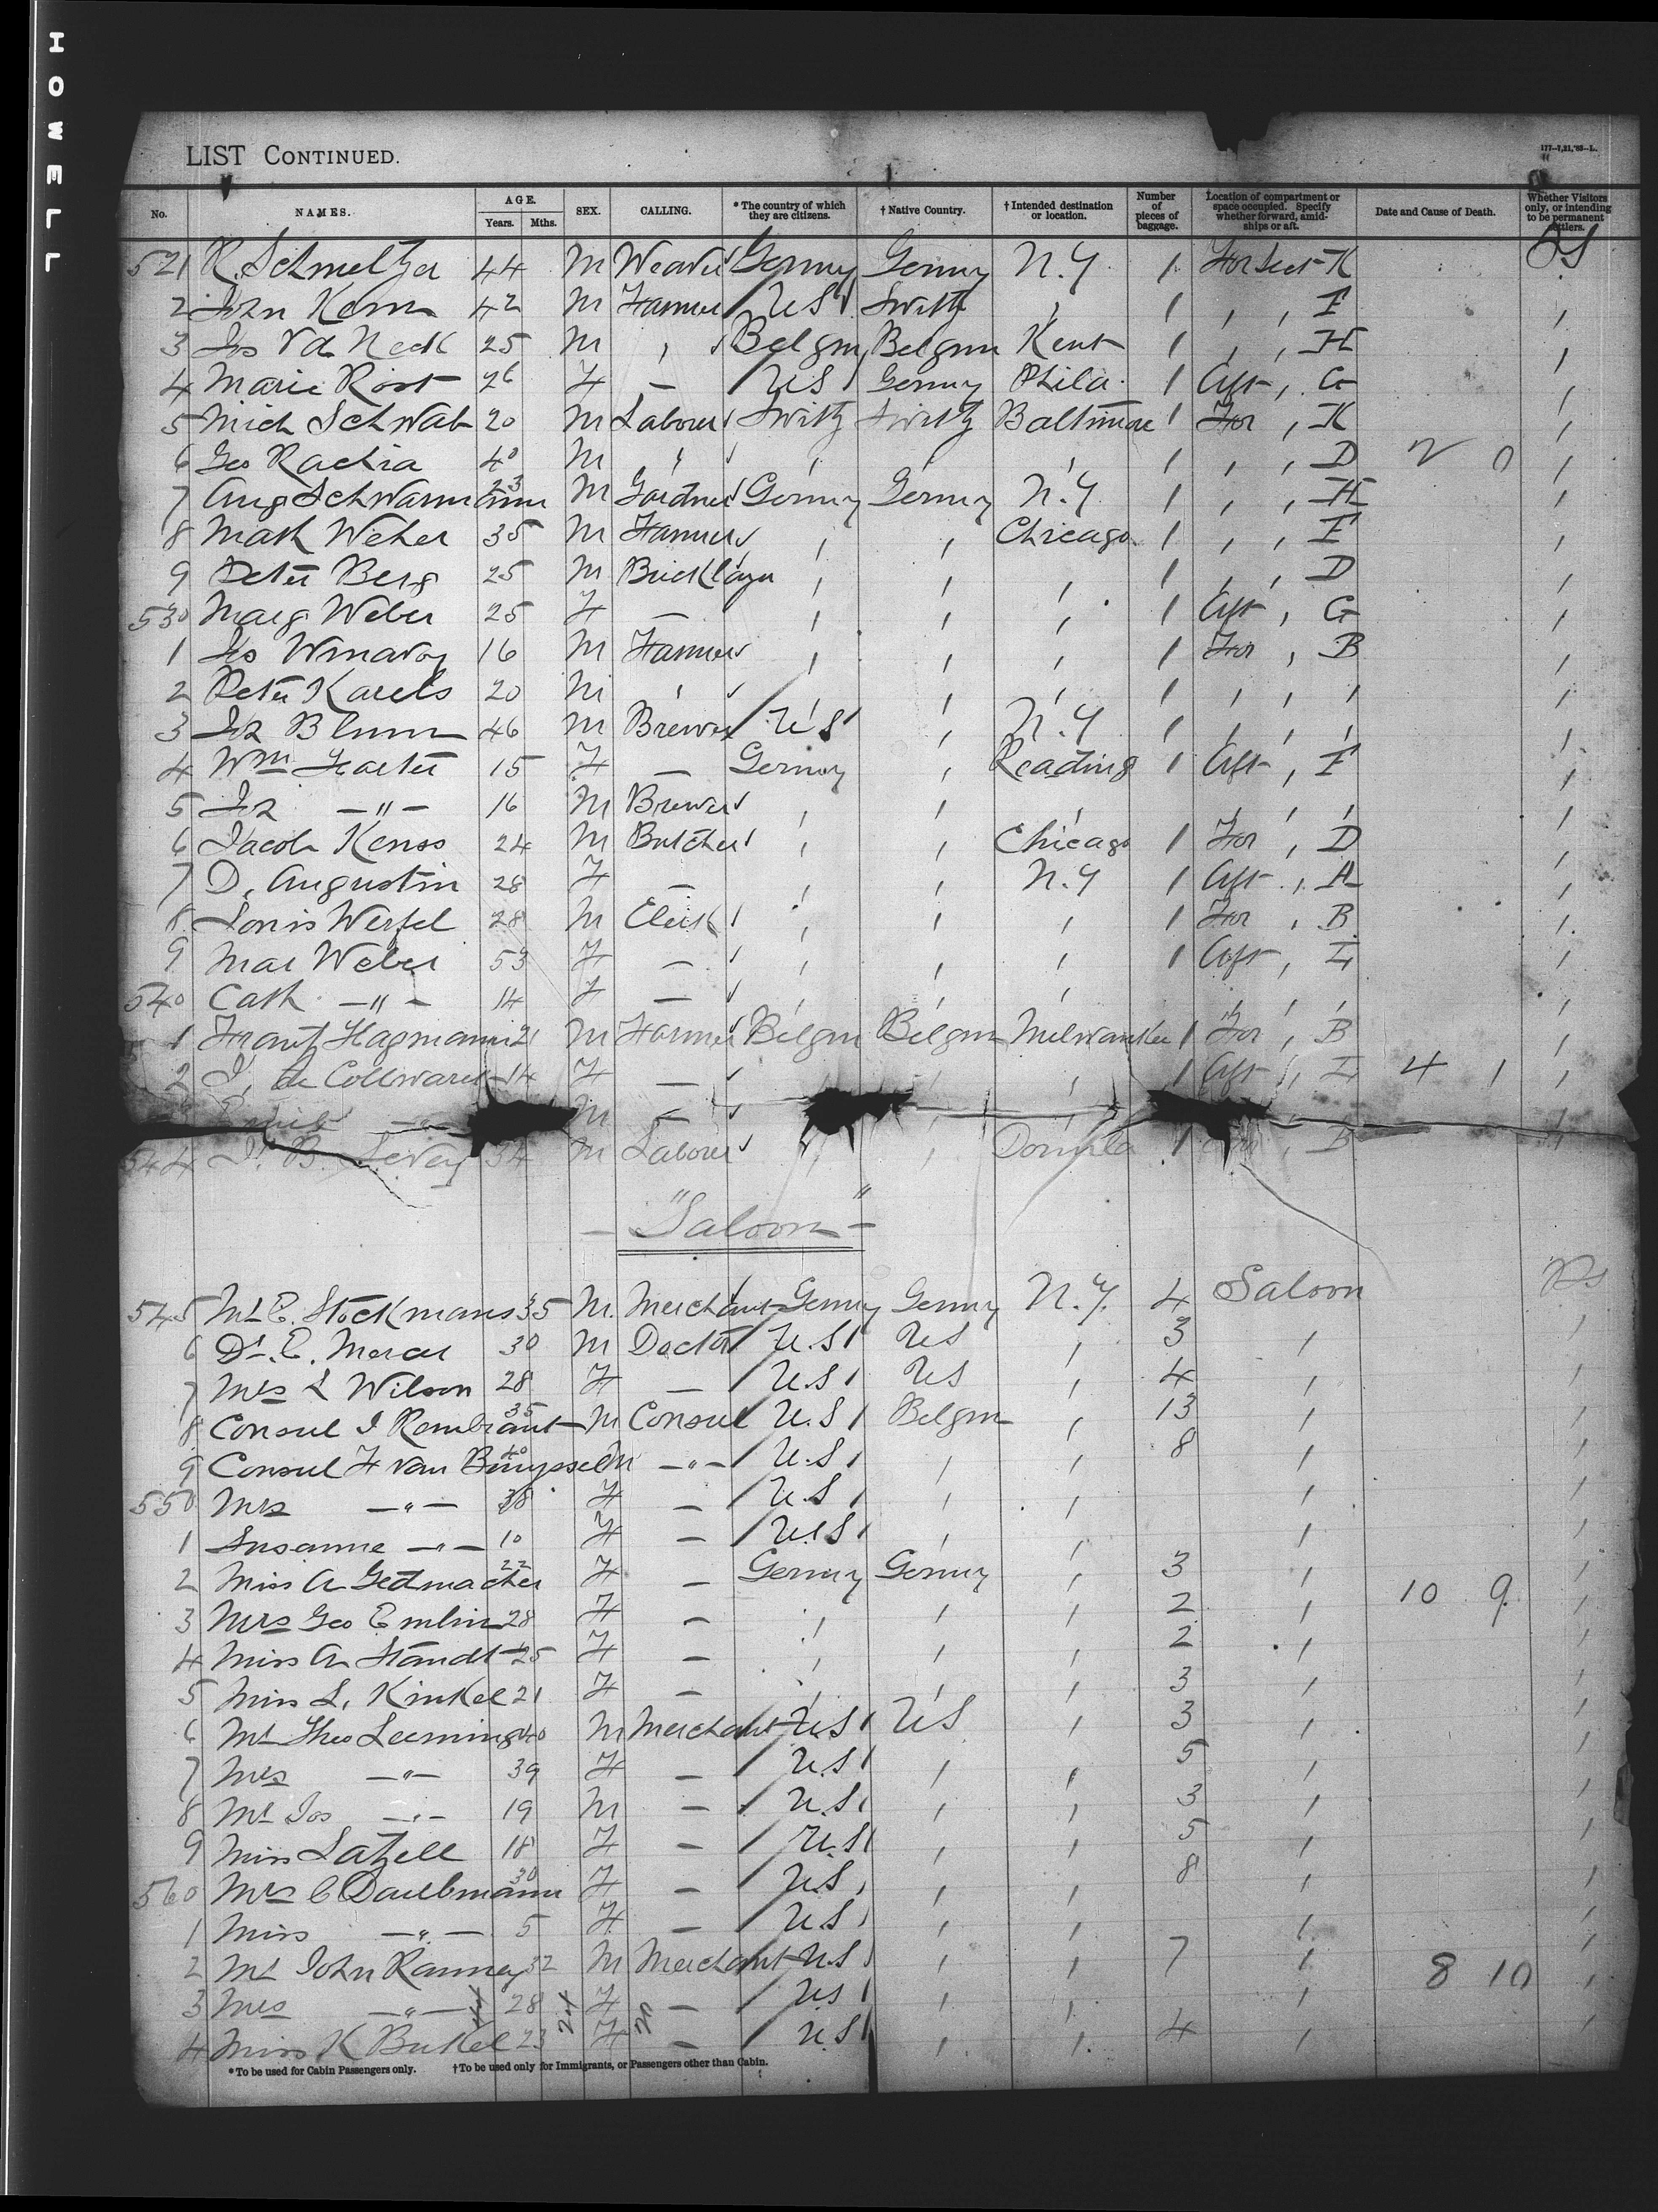 HOWELL
LIST CONTINUED.
177-7,21,'85-L.
No. NAMES. AGE. Years. Mths. SEX. CALLING. * The country of which they are citizens. † Native Country. † Intended destination or location. Number of pieces of baggage. Location of compartment or space occupied. Specify whether forward, amidships or aft. Date and Cause of Death. Whether Visitors only, or intending to be permanent settlers.
521 R. Schmeltzer 44 M Weaver Germy Germy N.Y. 1 For Sect K
2 John Kern 42 M Farmer US Switz , 1 , ,
3 Jos Vd Neck 25 M , Belgm Belgm Kent 1 , , H
4 Marie Rost 26 F — US Germy Phila. 1 Aft , G
5 Mich Schwab 20 M Laborer Switz Switz Baltimore 1 For , K
6 Geo Rachia 40 M " , , , 1 , , D 2 0
7 Aug Schwarmann 23 M Gardner Germy Germy N.Y 1 , , H
8 Math Weber 35 M Farmer , , Chicago 1 , ,
9 Peter Berg 25 M Bricklayer , , , 1 , , D
530 Marg Weber 25 F — , , , 1 Aft , G
1 16 M Farmer , , , 1 For , B
2 Peter Karels 20 M , , , , 1 , , ,
3 Blum 46 M Brewer US , N.Y 1 , , ,
4 Wm 15 F — Germy , Reading 1 Aft ,
5 —"— 16 M Brewer , , , , ,
6 Jacob Kenss 24 M Butcher , , Chicago 1 For , D
7 D. Augustin 28 F — , , N.Y 1 Aft , A
8 Louis Werfel 28 M Clerk , , , 1 For , B
9 Mar Weber 53 F — , , , 1 Aft , I
540 Cath —"— 14 F — , , , , ,
1 Frantz Hagmann 21 M Farmer Belgm Belgm Milwaukee 1 For , B
2 J. de 14 F — , , , 1 Aft , I 4 1
M —
544 J. B. Sevey 34 M Laborer , , 1 , B
— "Saloon" —
545 Mr E. Stockmans 35 M. Merchant Germy Germy N.Y. 4 Saloon
6 Dr. E. Mercer 30 M Doctor U.S US , 3 ,
7 Mrs L Wilson 28 F — U.S US , 4 ,
8 Consul J Rembrant 35 M Consul U.S Belgm , 13 ,
9 Consul F van Bruyssel 40 M —"— U.S , , 8 ,
550 Mrs —"— 38 F — U.S , , ,
1 Susanne —"— 10 F — U.S , , ,
2 Miss A Gedmacher 22 F — Germy Germy , 3 , 10 9
3 Mrs Geo Emlin 28 F — , , , 2 ,
4 Miss A Standt 25 F — , , , 2 ,
5 Miss L. Kinkel 21 F — , , , 3 ,
6 Mr Theo Leeming 40 M Merchant US US , 3 ,
7 Mrs —"— 39 F — U.S , , 5 ,
8 Mr Jos —"— 19 M — U.S , , 3 ,
9 Miss Latzell 18 F — U.S , , 5 ,
560 Mrs C Daubmann 30 F — U.S , , 8 ,
1 Miss —"— 5 F — U.S , , ,
2 Mr John Ranney 32 M Merchant U.S , , 7 , 8 10
3 Mrs —"— 28 F — US , , ,
4 Miss K Bukel 23 F — U.S , , 4 ,
* To be used for Cabin Passengers only. † To be used only for Immigrants, or Passengers other than Cabin.